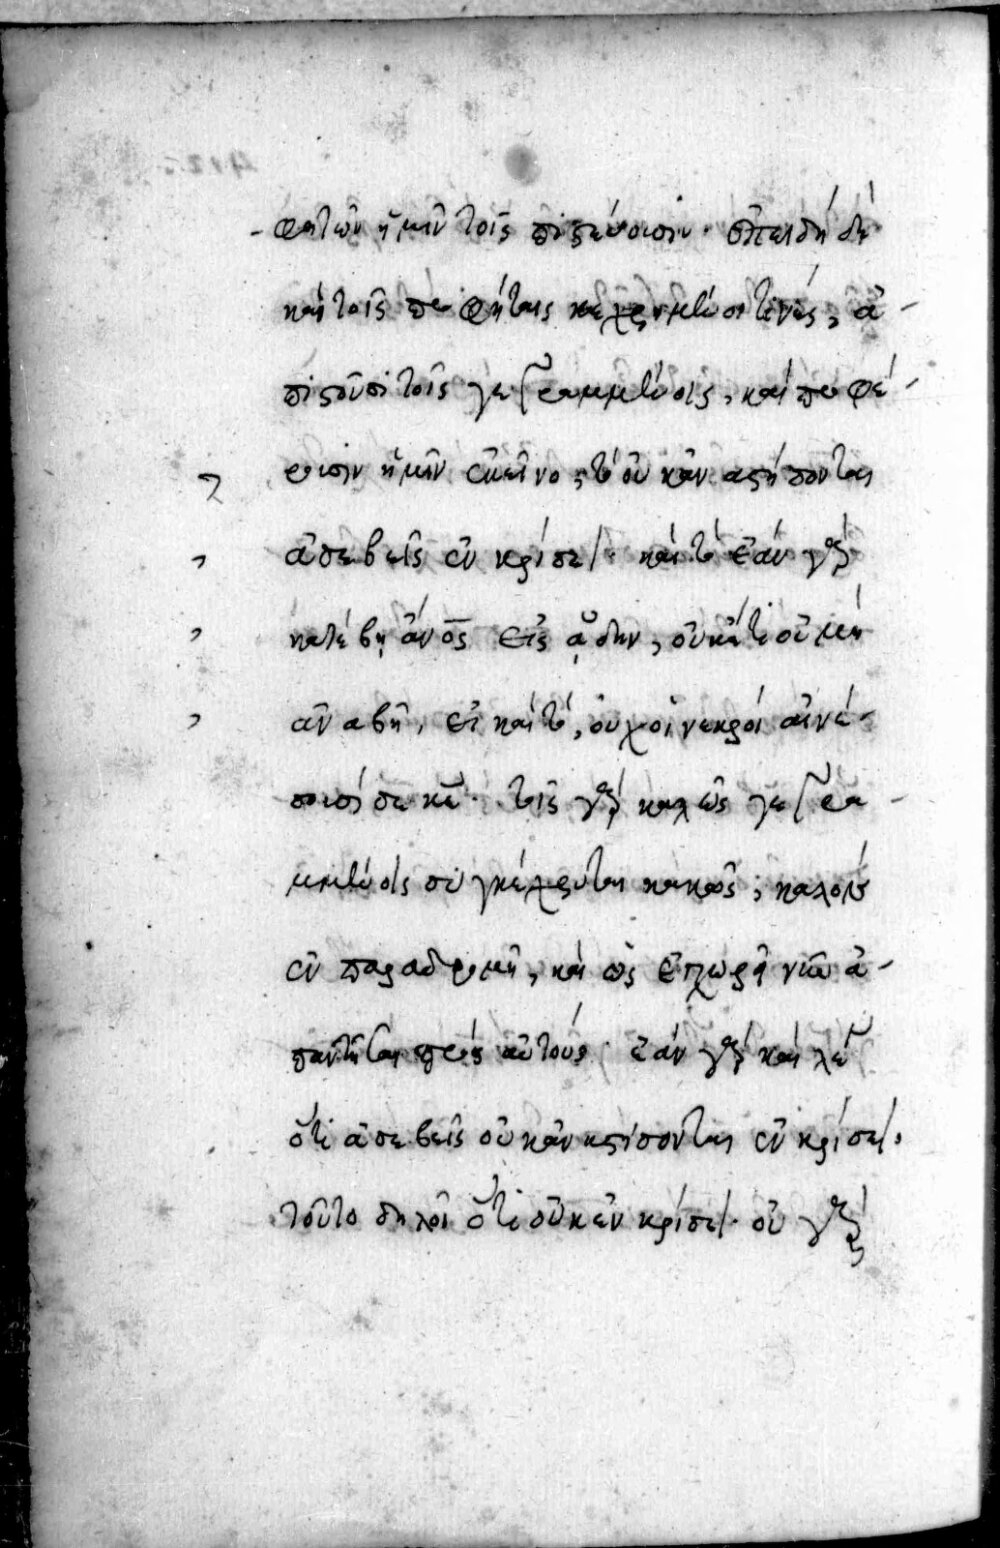 φητῶν ἡμῖν τοῖς πιστεύουσιν· ἐπειδὴ δὲ
καὶ τοῖς προφήταις κεχρημένοι τινὲς, ἀ-
πιστοῦσι τοῖς γεγραμμένοις, καὶ προφέ-
ρουσιν ἡμῖν ἐκεῖνο, τὸ οὐκ ἀναστήσονται
ἀσεβεῖς ἐν κρίσει· καὶ τὸ ἐὰν γὰρ
καταβῇ ἄνος εἰς ᾅδην, οὐκέτι οὐ μὴ
ἀναβῇ, ἔτι καὶ τὸ, οὐχ οἱ νεκροὶ αἰνέ-
σουσί σε κε· τοῖς γὰρ καλῶς γεγρα-
μμένοις συγκέχρηνται κακῶς; καλὸν
ἐν παραδρομῇ, καὶ ὡς ἐγχωρεῖ νῦν ἀ-
παντῆσαι πρὸς αὐτούς· ἐὰν γὰρ καὶ λέγ
ὅτι ἀσεβεῖς οὐκ ἀναστήσονται ἐν κρίσει,
τοῦτο δηλοῖ ὅτι οὐκ ἐν κρίσει· οὐ γὰρ